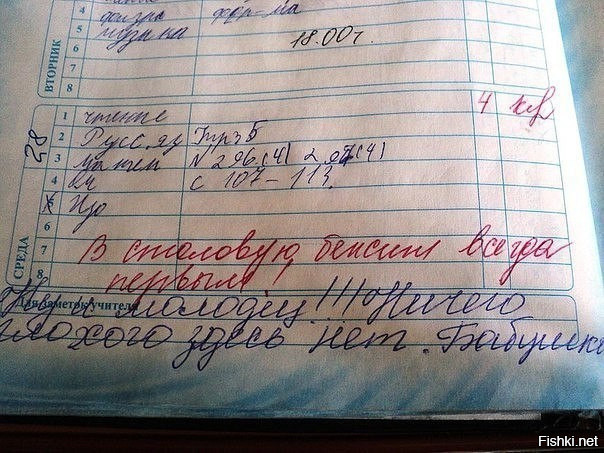 4 физра форма
5 музыка 18.00г.
6
7
8
ВТОРНИК
28
1 чтение 4
2 Русс.яз Упр 5
3 матем N 296 (4) 297 (4)
4 с 107-113
5 Изо
6
7 В столовую бежит всегда
8 первым!
СРЕДА
Для заметок учителя
Ну и молодец!!! Ничего
плохого здесь нет. Бабушка
Fishki.net